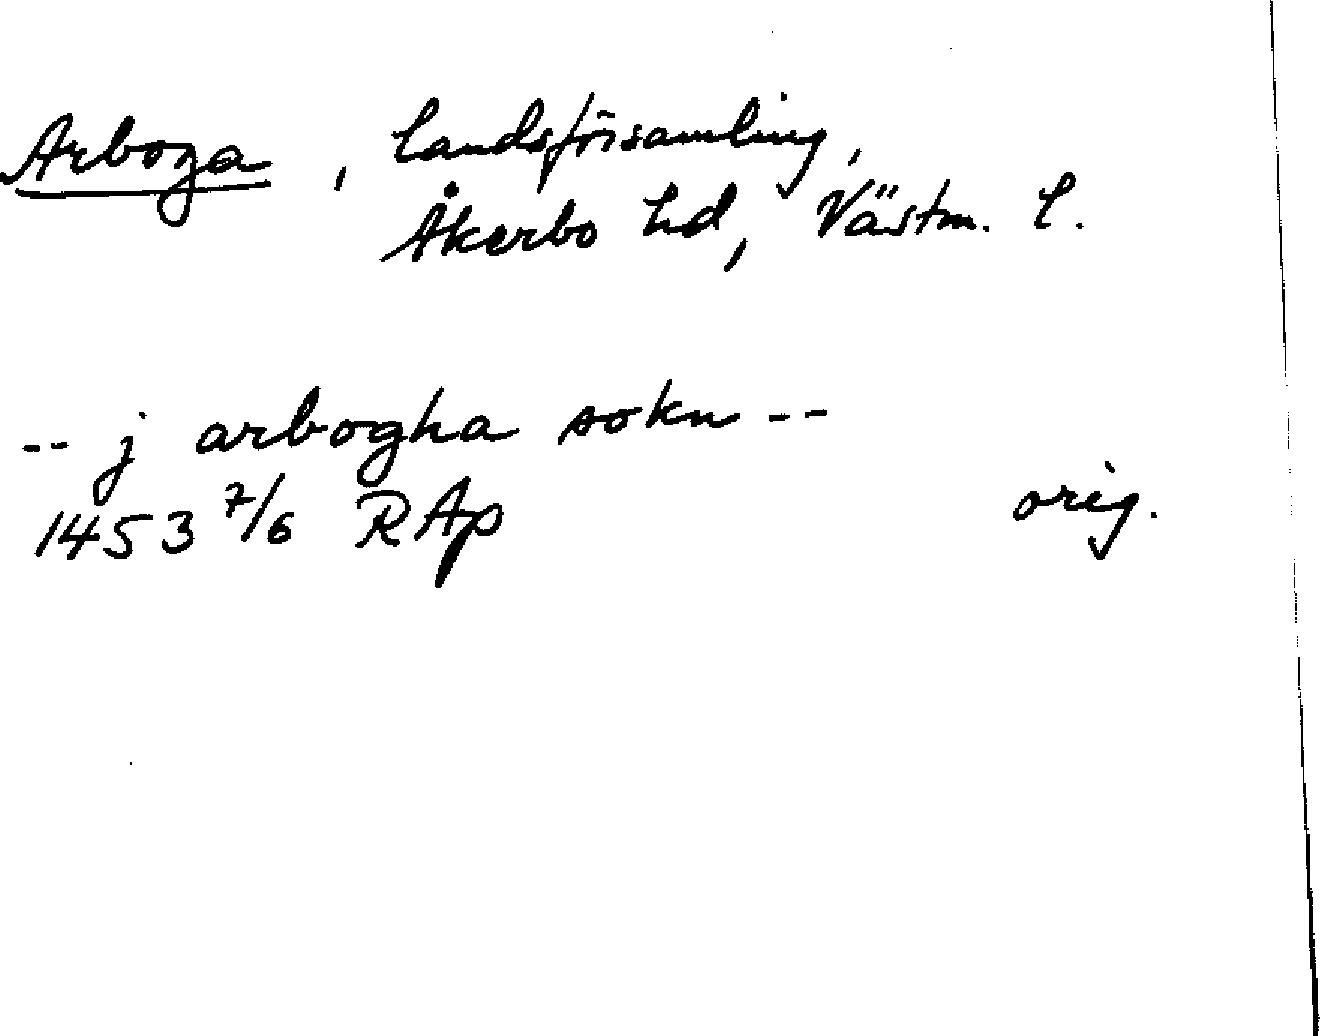 Arboga, landsförsamling,
Åkerbo hd, Västm. l.
-- j arbogha sokn --
1453 7/6 RAp orig.